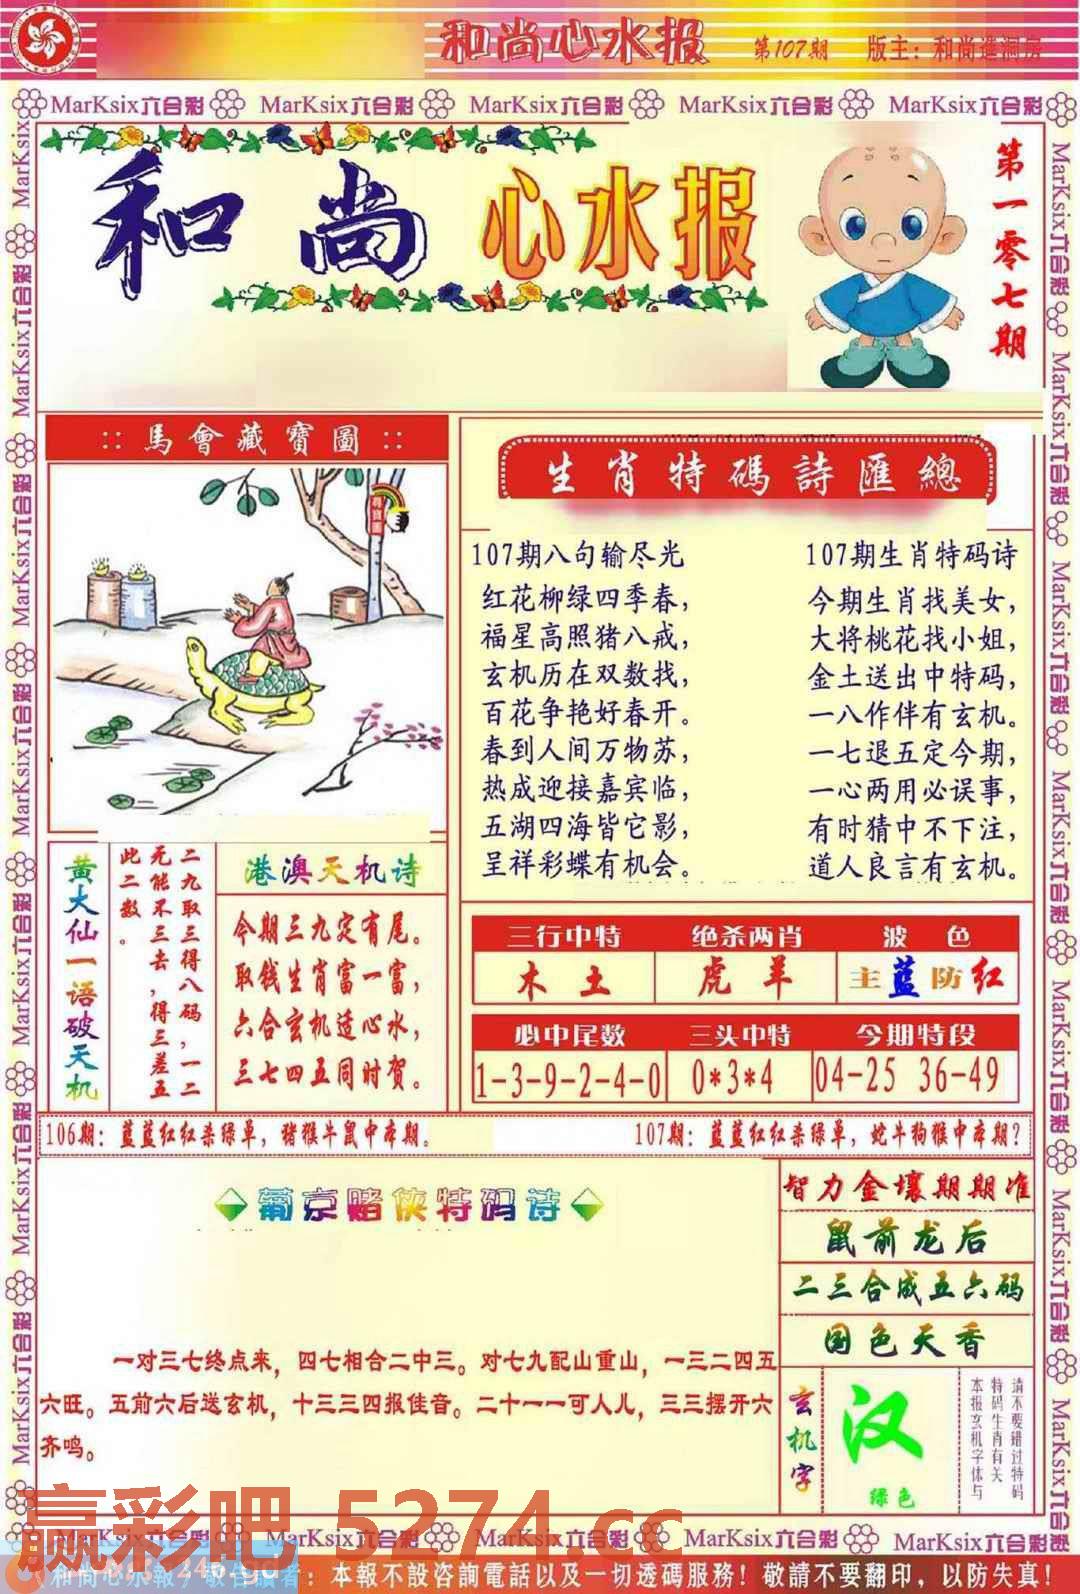 和尚心水报 第107期 版主：和尚進洞房
MarKsix六合彩 MarKsix六合彩 MarKsix六合彩 MarKsix六合彩 MarKsix六合彩
和尚心水报
第一零七期
::馬會藏寶圖::
尋寶圖
生肖特碼詩匯總
107期八句输尽光
红花柳绿四季春，
福星高照猪八戒，
玄机历在双数找，
百花争艳好春开。
春到人间万物苏，
热成迎接嘉宾临，
五湖四海皆它影，
呈祥彩蝶有机会。
107期生肖特码诗
今期生肖找美女，
大将桃花找小姐，
金土送出中特码，
一八作伴有玄机。
一七退五定今期，
一心两用必误事，
有时猜中不下注，
道人良言有玄机。
黄大仙一语破天机
二九取三得八码，一二
无能不三去，得三差五
此二数。
港澳天机诗
今期三九定有尾。
取钱生肖富一富，
六合玄机适心水，
三七四五同时贺。
三行中特 绝杀两肖 波色
木土 虎羊 主蓝防红
必中尾数 三头中特 今期特段
1-3-9-2-4-0 0*3*4 04-25 36-49
106期：蓝蓝红红杀绿单，猪猴牛鼠中本期。
107期：蓝蓝红红杀绿单，蛇牛狗猴中本期？
葡京赌侠特码诗
一对三七终点来，四七相合二中三。对七九配山重山，一三二四五
六旺。五前六后送玄机，十三三四报佳音。二十一一可人儿，三三摆开六
齐鸣。
智力金壤期期准
鼠前龙后
二三合成五六码
国色天香
玄机字
汉
绿色
请不要错过特码
特码生肖有关
本报玄机字体与
赢彩吧 5274.cc
MarKsix六合彩 MarKsix六合彩 MarKsix六合彩 MarKsix六合彩 MarKsix六合彩
：本報不設咨詢電話以及一切透碼服務！敬請不要翻印，以防失真！